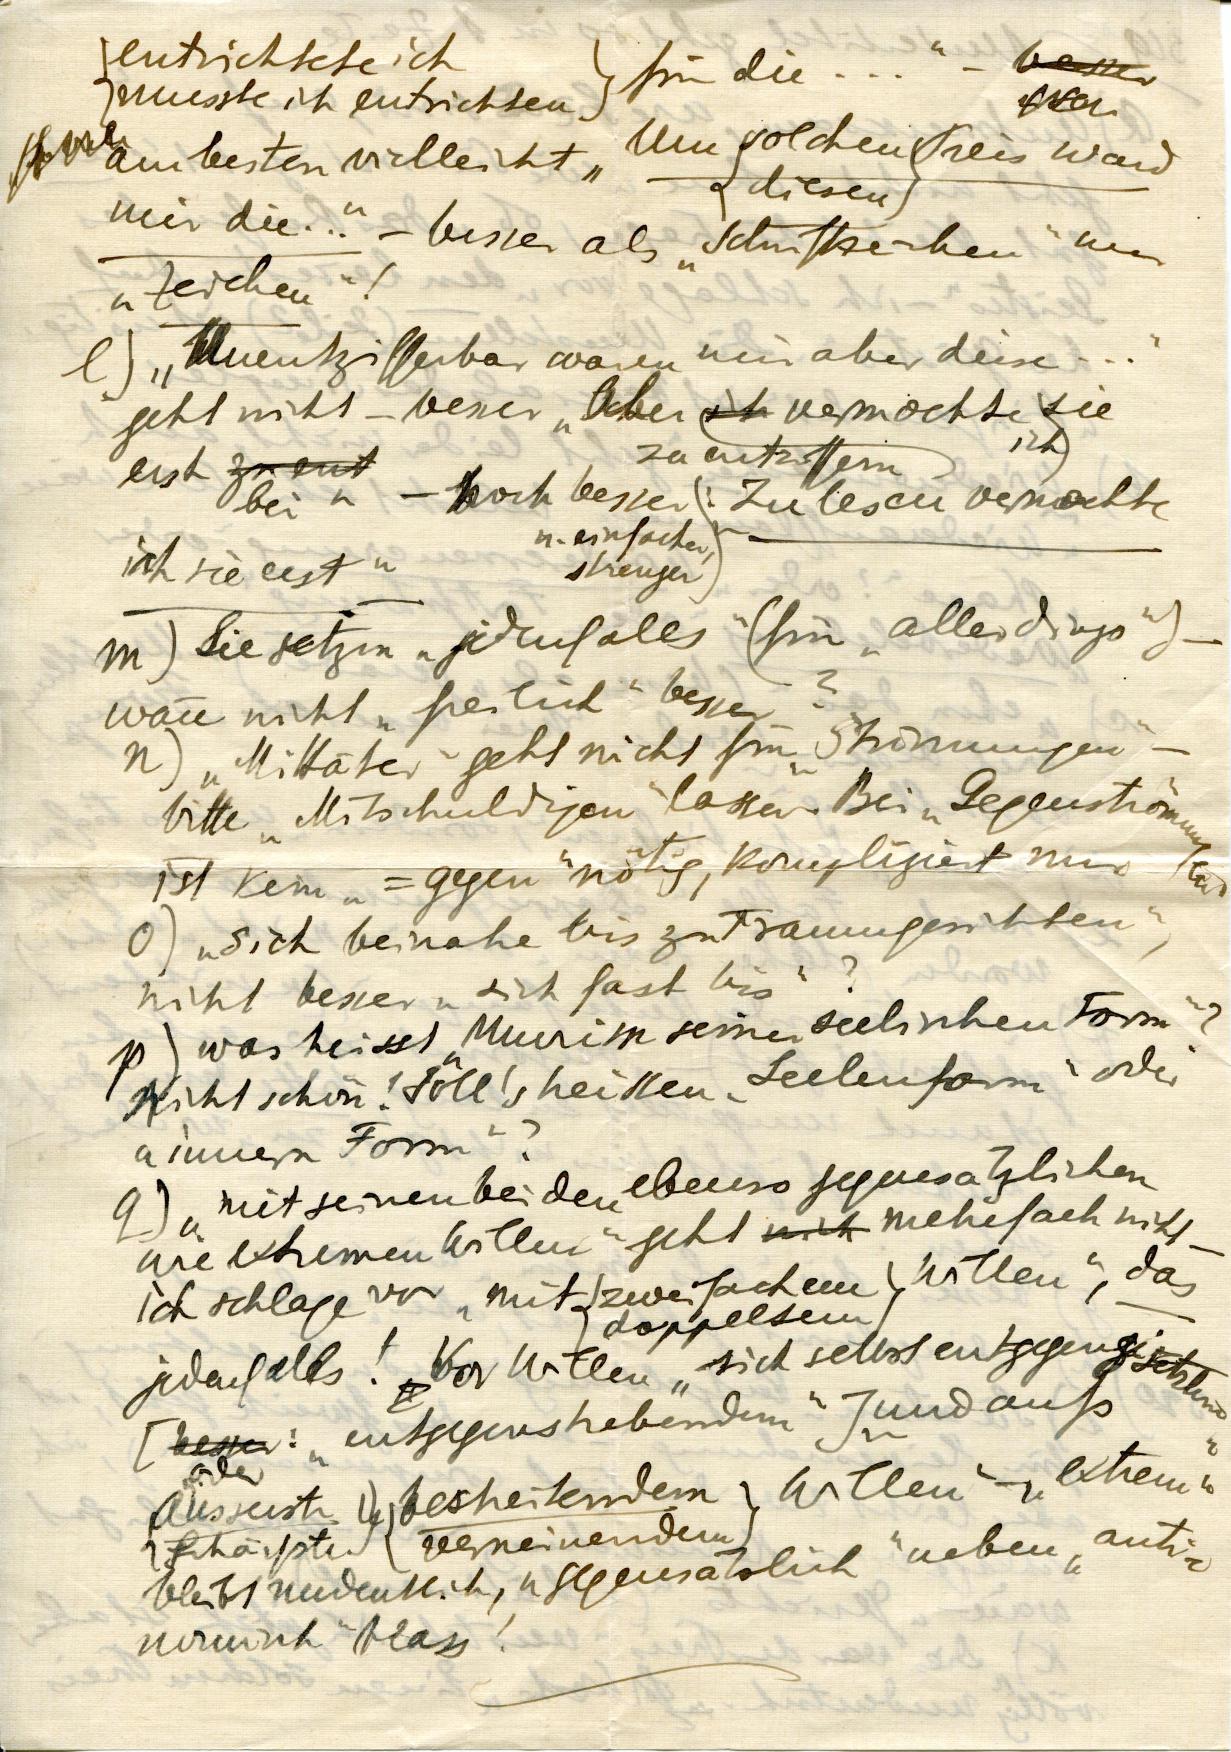 {entrichtete ich
{musste ich entrichten} für die ...." – besser
am besten vielleicht „Um {solchen Preis ward
{diesen}
mir die..." – besser als „Schriftzeichen" nur
„Zeichen"!
l) „Unentzifferbar waren mir aber diese ..."
geht nicht – besser „Aber ich vermochte sie
ich
zu entziffern
erst zu ent
bei" – noch besser: Zu lesen vermochte
u. einfacher,
strenger
ich sie erst"
m) Sie setzen „jedenfalls" (für „allerdings") –
wäre nicht „freilich" besser?
n) „Mittäter" geht nicht für „Strömungen" –
bitte „Mitschuldigen" lassen. Bei „Gegenströmung"
ist kein „=gegen" nötig, kompliziert nur
o) „sich beinahe bis zu Traumgesichten",
nicht besser „sich fast bis"?
p) was heisst „Umriss seiner seelischen Form"?
Nicht schön! Soll's heissen „Seelenform" oder
„innern Form"?
q) „mit seinen beiden ebenso gegensätzlichen
wie extremen Willen" geht nich mehrfach nicht –
ich schlage vor „mit {zweifachem} Willen", das
{doppeltem}
jedenfalls! Vor Willen „sich selbst entgegengesetztem"
[besser: „entgegenstrebendem"] und aufs
oder
Äusserste {bestreitendem} Willen" – „extrem"
{schärfste} {verneinendem}
bleibt undeutlich, „gegensätzlich" neben „anti-
nomisch" blass!